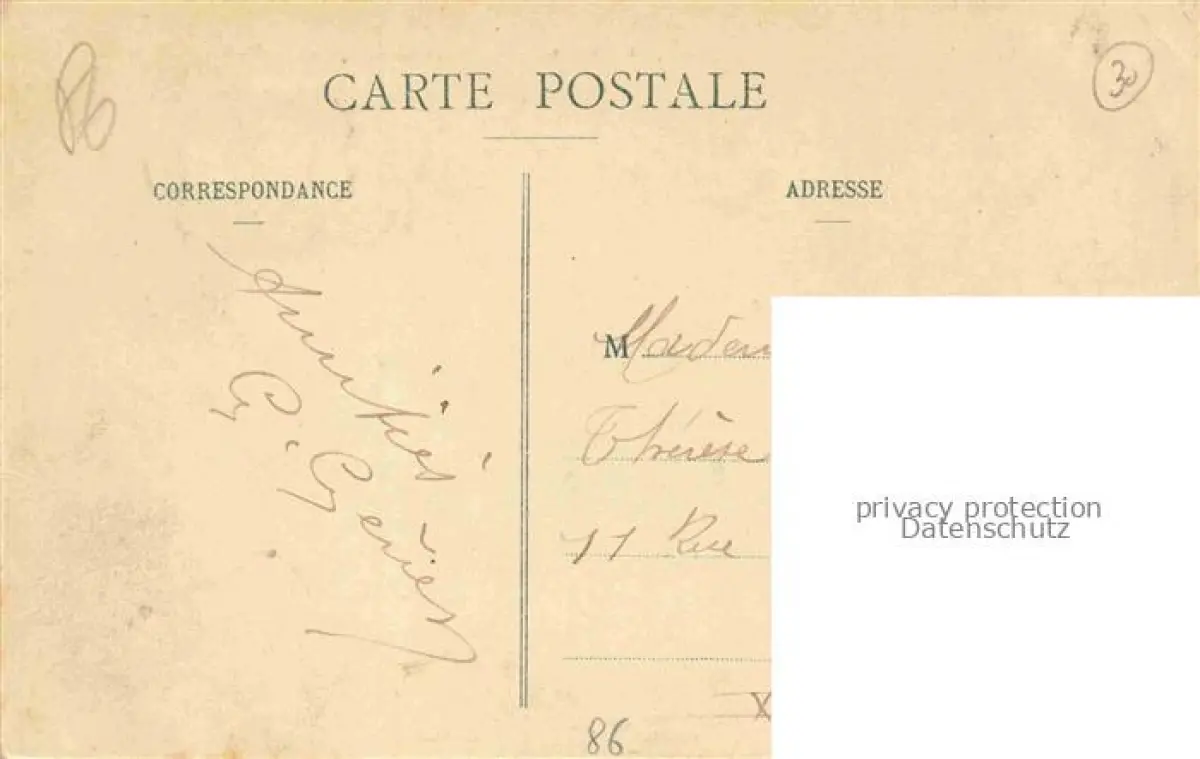 86
30
CARTE POSTALE
CORRESPONDANCE
Amitiés
G.
ADRESSE
M Madem
Thérèse
11 Rue
X
86
privacy protection
Datenschutz